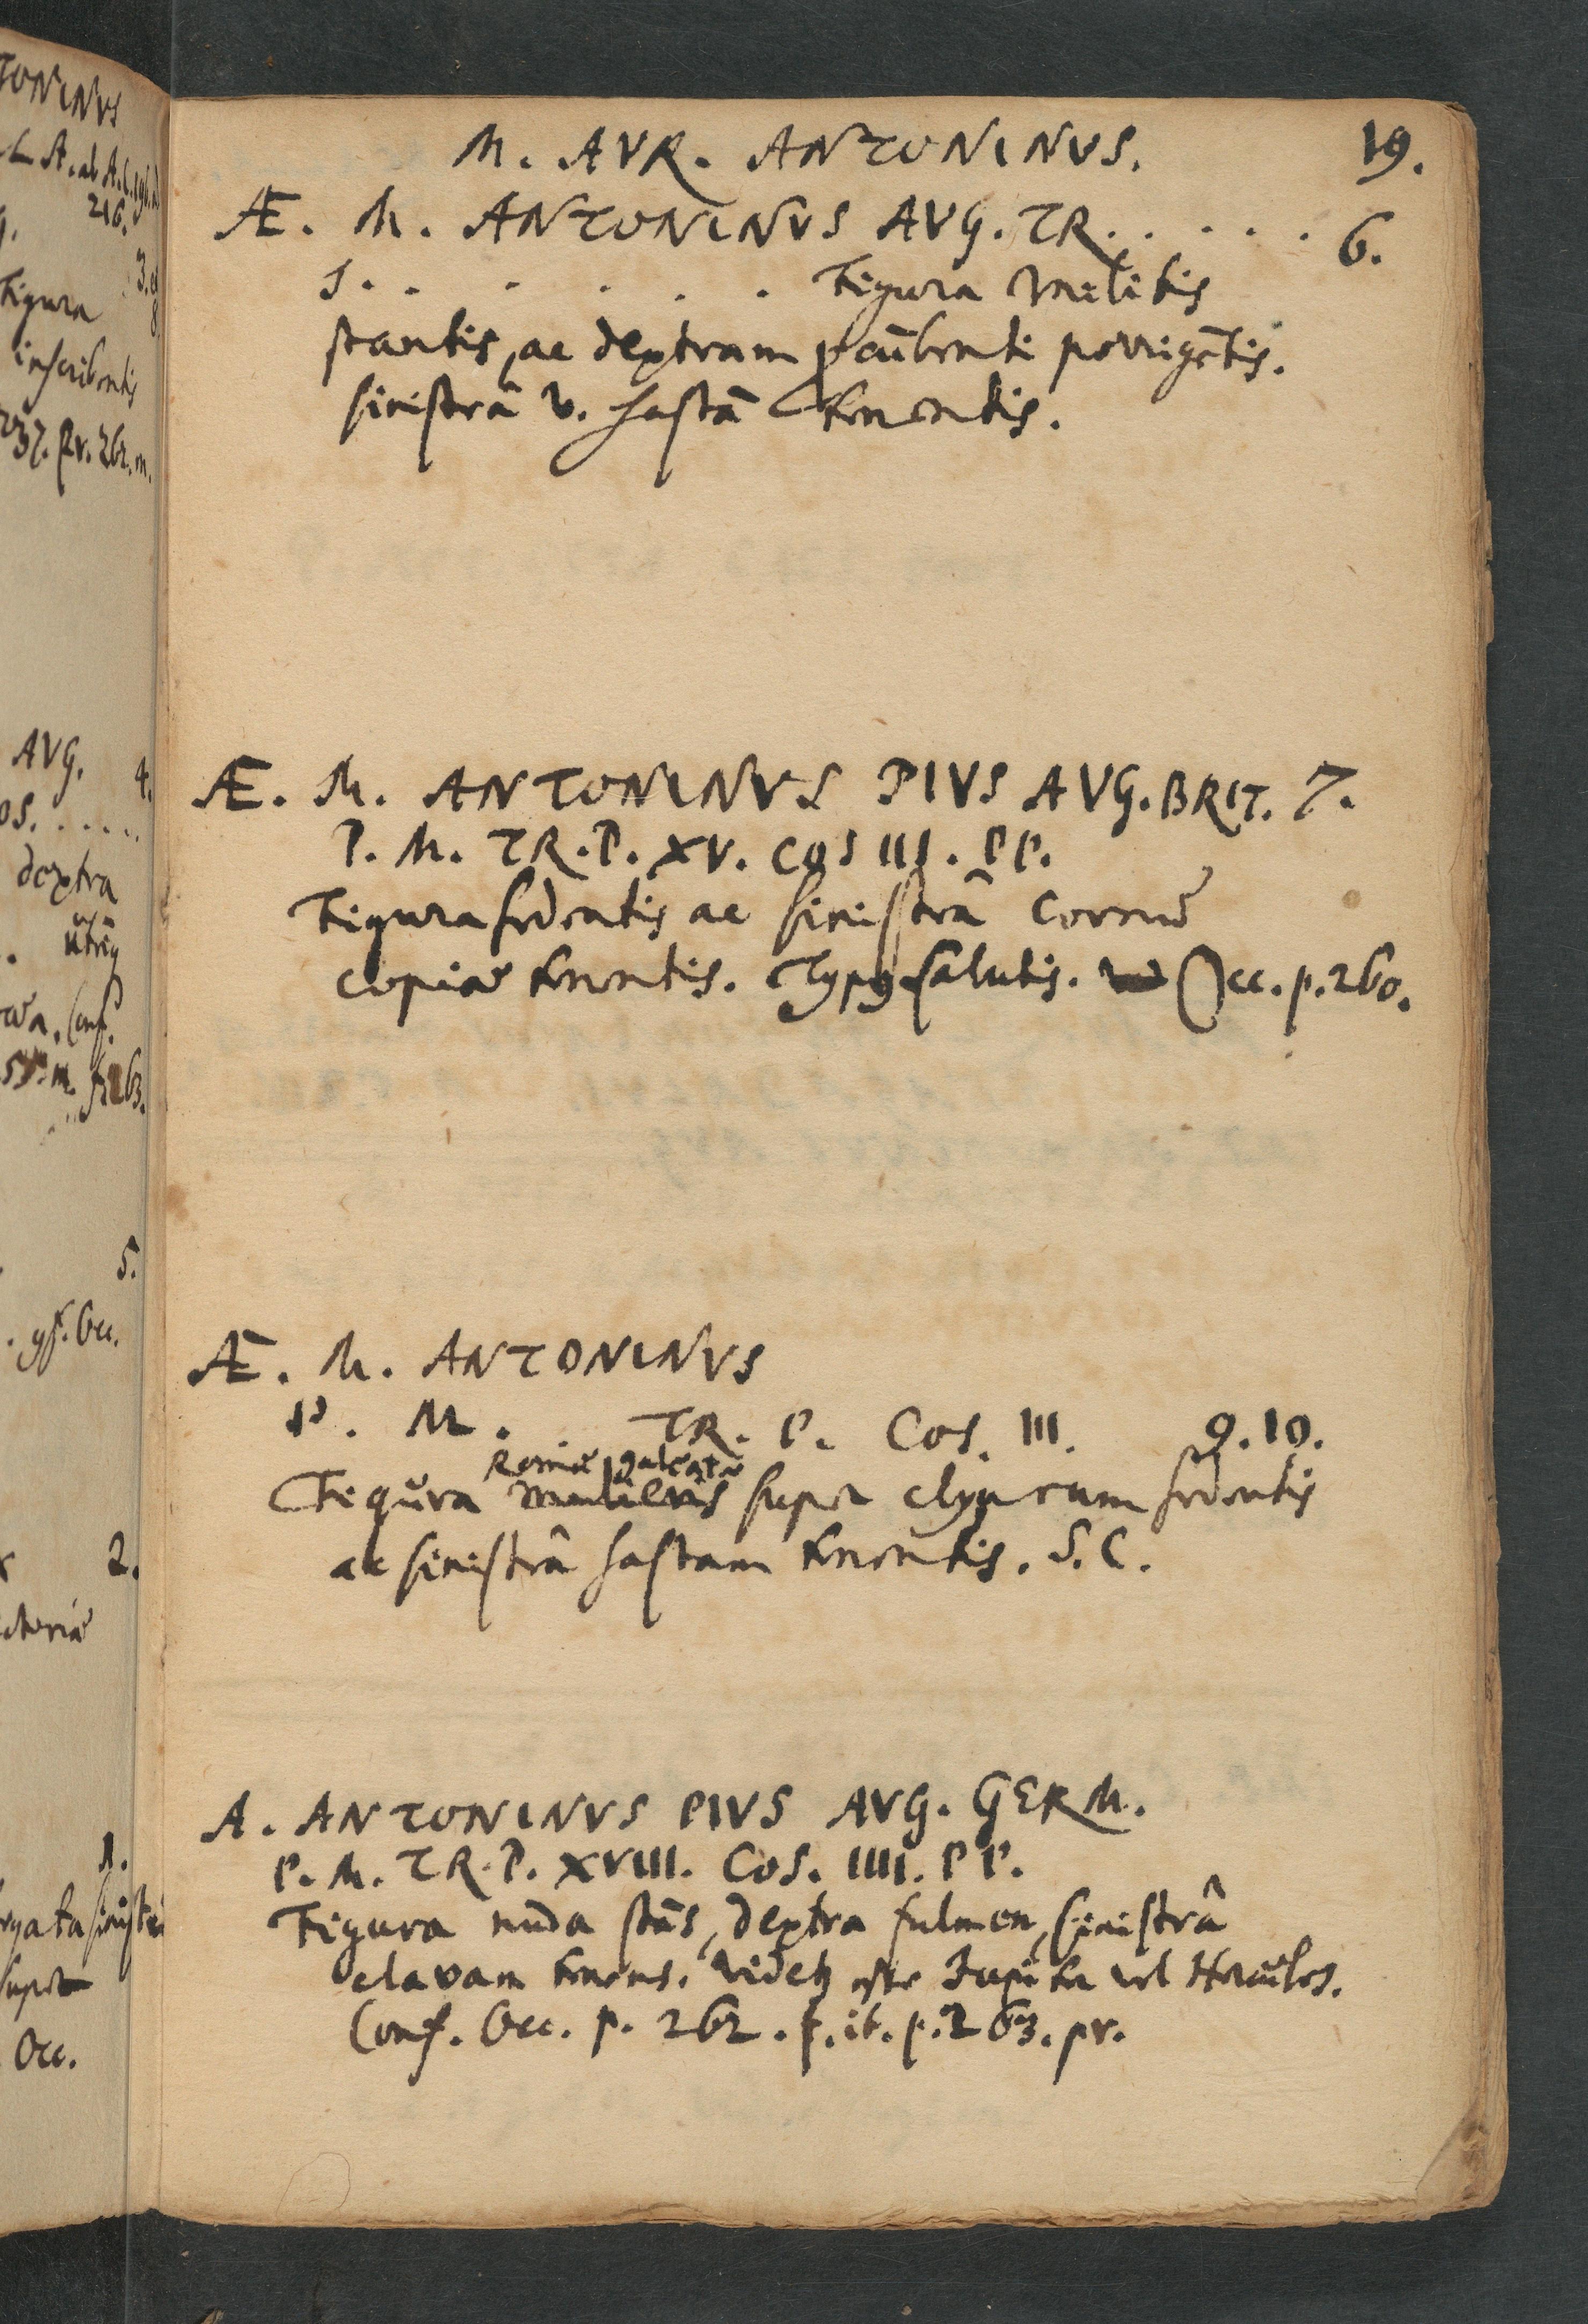 TONINVS
216.
Figura
inscribentis
AVG. 4.
OS. . . . .
dextra
5.
2.
1.
Occ.
M. AVR. ANTONINVS. 19.
Æ. M. ANTONINVS AVG. TR. . . . . . 6.
S. . . . . . . Figura Militis
stantis, ac dextram ꝓcūbenti porrigētis.
sinistrâ v. hastā tenentis.
Æ. M. ANTONINVS PIVS AVG. BRIT. 7.
P. M. TR. P. XV. COS III. PP.
Figura sedentis ac sinistrâ Cornu
copiæ tenentis. Typꝰ salutis. Occ. p. 260.
Æ. M. ANTONINVS
P. M. TR. P. COS. III. 9. 10.
Romæ galeatæ
Figura Mulieris super clypeum sedentis
ac sinistrâ hastam tenentis. S. C.
A. ANTONINVS PIVS AVG. GERM.
P. M. TR. P. XVIII. COS. IIII. PP.
Figura nuda stās, dextra fulmen, sinistrâ
clavam tenens. videtꝫ esse Jupiter vel Hercules.
Conf. Occ. p. 262. f. it. p. 263. pr.